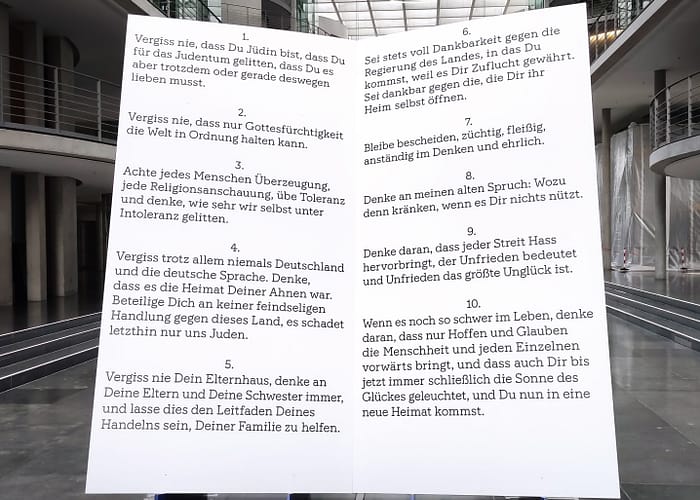 1.
Vergiss nie, dass Du Jüdin bist, dass Du
für das Judentum gelitten, dass Du es
aber trotzdem oder gerade deswegen
lieben musst.
2.
Vergiss nie, dass nur Gottesfürchtigkeit
die Welt in Ordnung halten kann.
3.
Achte jedes Menschen Überzeugung,
jede Religionsanschauung, übe Toleranz
und denke, wie sehr wir selbst unter
Intoleranz gelitten.
4.
Vergiss trotz allem niemals Deutschland
und die deutsche Sprache. Denke,
dass es die Heimat Deiner Ahnen war.
Beteilige Dich an keiner feindseligen
Handlung gegen dieses Land, es schadet
letzthin nur uns Juden.
5.
Vergiss nie Dein Elternhaus, denke an
Deine Eltern und Deine Schwester immer,
und lasse dies den Leitfaden Deines
Handelns sein, Deiner Familie zu helfen.
6.
Sei stets voll Dankbarkeit gegen die
Regierung des Landes, in das Du
kommst, weil es Dir Zuflucht gewährt.
Sei dankbar gegen die, die Dir ihr
Heim selbst öffnen.
7.
Bleibe bescheiden, züchtig, fleißig,
anständig im Denken und ehrlich.
8.
Denke an meinen alten Spruch: Wozu
denn kränken, wenn es Dir nichts nützt.
9.
Denke daran, dass jeder Streit Hass
hervorbringt, der Unfrieden bedeutet
und Unfrieden das größte Unglück ist.
10.
Wenn es noch so schwer im Leben, denke
daran, dass nur Hoffen und Glauben
die Menschheit und jeden Einzelnen
vorwärts bringt, und dass auch Dir bis
jetzt immer schließlich die Sonne des
Glückes geleuchtet, und Du nun in eine
neue Heimat kommst.